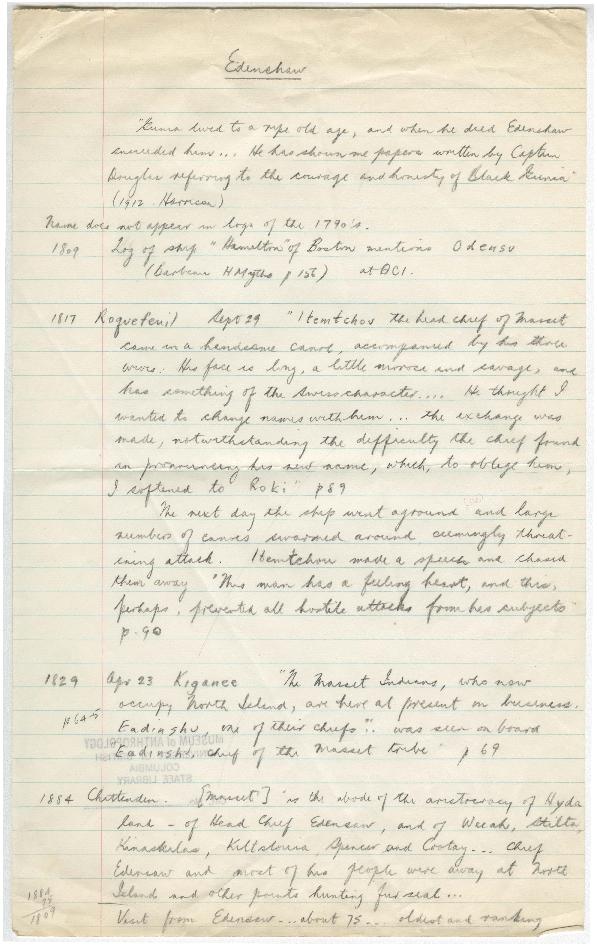 Edenshaw
"Gunia lived to a ripe old age, and when he died Edenshaw
succeeded him... He has shown me papers written by Captain
Douglas referring to the courage and honesty of Black Gunia"
(1912 Harrison)
Name does not appear in logs of the 1790's.
1809 Log of ship "Hamilton" of Boston mentions Odensu
(Barbeau H Myths p 156) at QCI.
1817 Roquefeuil Sept 29 "Itemtchou the head chief of Masset
came in a handsome canoe, accompanied by his three
wives. His face is long, a little morose and savage, and
has something of the Swiss character.... He thought I
wanted to change names with him... the exchange was
made, notwithstanding the difficulty the chief found
in pronouncing his new name, which, to oblige him,
I softened to Roki" p 89
The next day the ship went aground and large
numbers of canoes swarmed around seemingly threat-
ening attack. Itemtchou made a speech and chased
them away "This man has a feeling heart, and this,
perhaps, prevented all hostile attacks from his subjects"
p. 90
1829 Apr 23 Kiganee "The Masset Indians, who now
occupy North Island, are here at present on business.
p 64-5 Eadinshu, one of their chiefs".. was seen on board
Eadinshu, chief of the Masset tribe" p 69
MUSEUM of ANTHROPOLOGY
COLUMBIA
STAFF LIBRARY
1884 Chittenden. [Masset] "is the abode of the aristocracy of Hyda
land - of Head Chief Edensaw, and of Weeah, Stilta,
Kinaskilas, Killstouia, Spencer and Cootay... Chief
Edensaw and most of his people were away at North
Island and other points hunting fur seal...
Visit from Edensaw... about 75... oldest and ranking
1884
75
1809